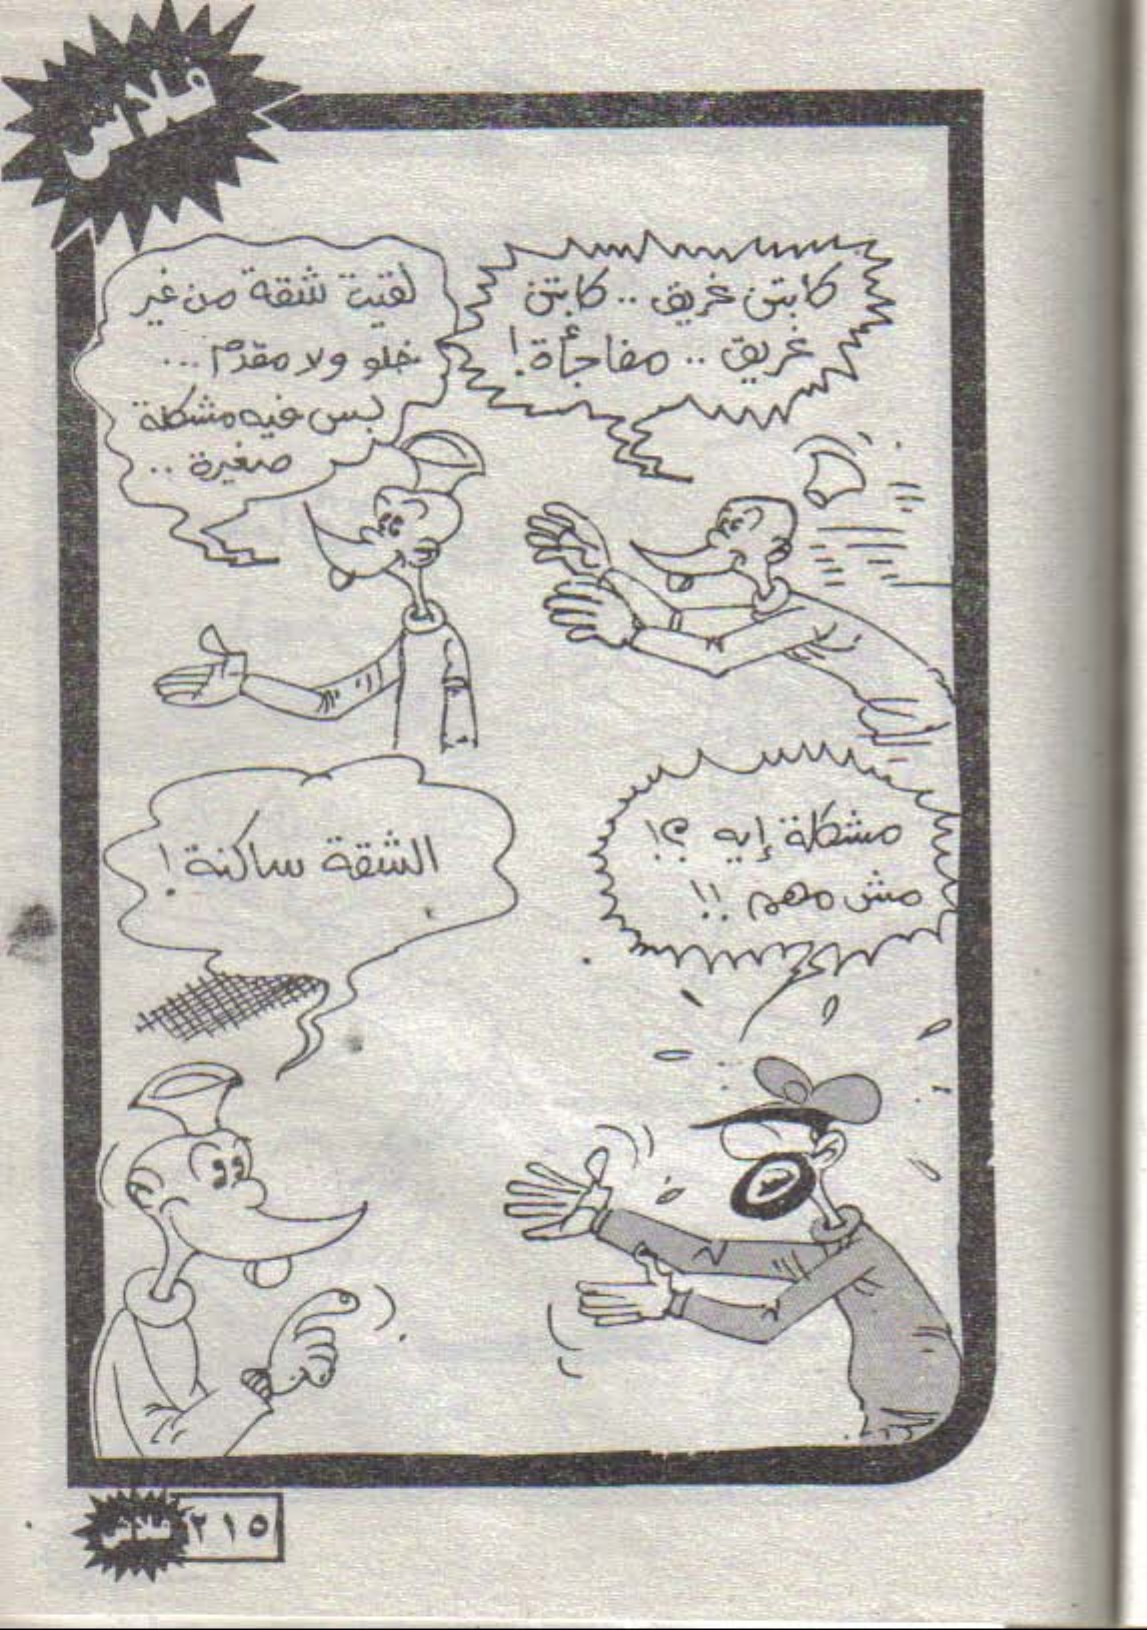 فلاش
كابتن غريق .. كابتن
غريق .. مفاجأة!
لقيت شقة من غير
خلو ولا مقدم ...
بس فيه مشكلة
صغيرة ..
مشكلة إيه ؟!
مش مهم !!
الشقة ساكنة!
فلاش ٢١٥